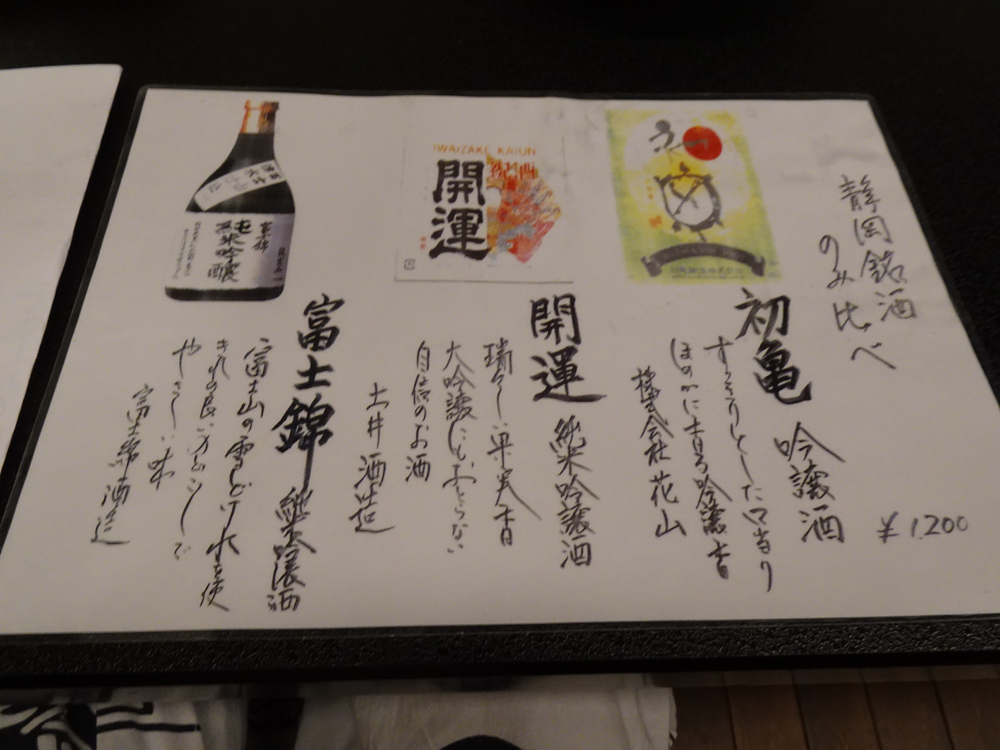 静岡銘酒
のみ比べ
¥1,200
初亀 吟醸酒
すっきりとした口当り
ほのかに香る吟醸香
株式会社 花山
IWAIZAKE KAIUN
開運
開運 純米吟醸酒
瑞々しい果実香
大吟醸にもおとらない
自信のお酒
土井酒造
純米吟醸
富士錦 純米吟醸酒
富士山の雪どけ水を使
やさしい味
富士錦酒造